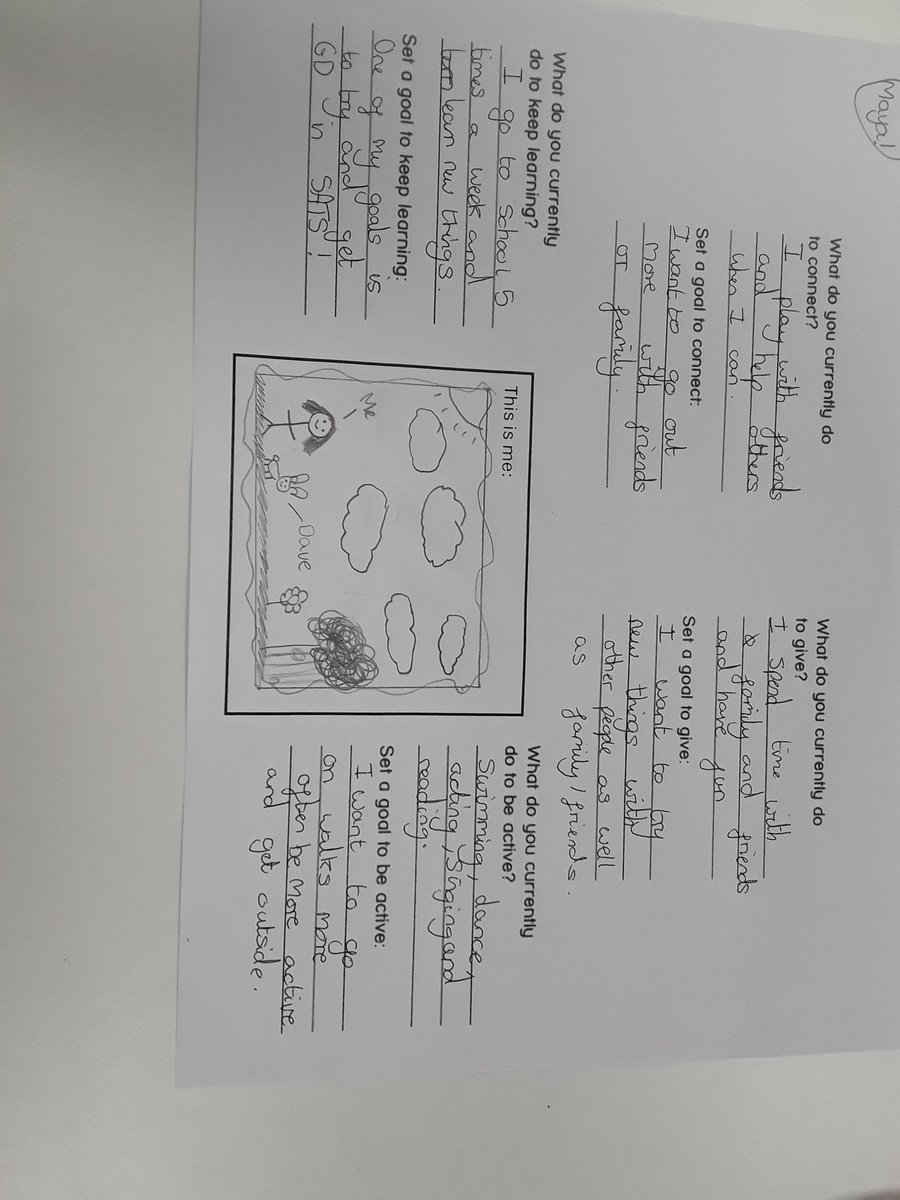 Maya!
What do you currently do
to connect?
I play with friends
and help others
when I can.
Set a goal to connect:
I want to go out
more with friends
or family.
What do you currently do
to give?
I spend time with
family and friends
and have fun
Set a goal to give:
I want to try
new things with
other people as well
as family/friends.
What do you currently
do to keep learning?
I go to school 5
times a week and
learn new things.
Set a goal to keep learning:
One of my goals is
to try and get
GD in SATS!
This is me:
Me
Dave
What do you currently
do to be active?
Swimming, dance,
acting, singing and
reading.
Set a goal to be active:
I want to go
on walks more
often be more active
and get outside.